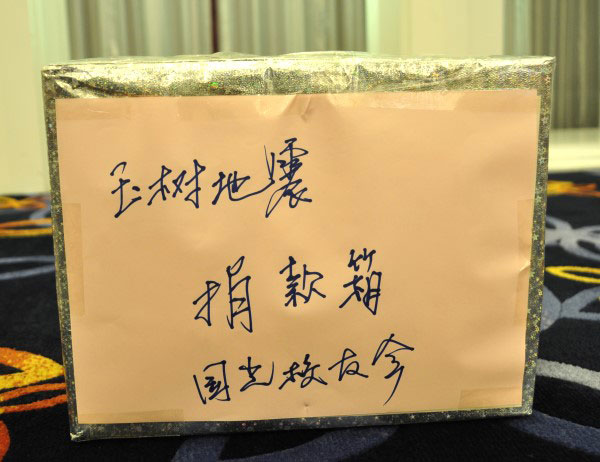 玉树地震
捐款箱
国光校友会